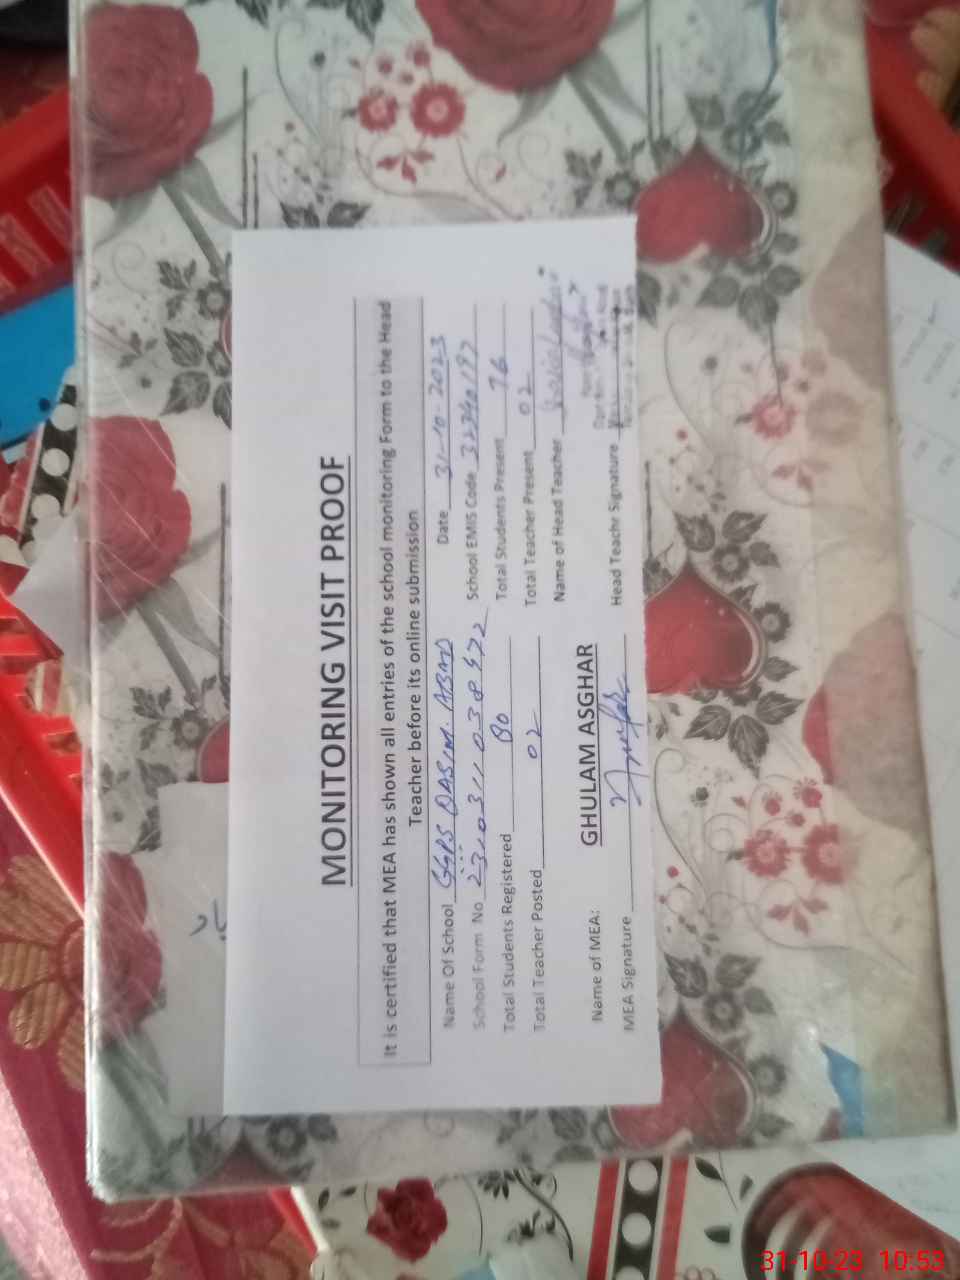 MONITORING VISIT PROOF
It is certified that MEA has shown all entries of the school monitoring Form to the Head
Teacher before its online submission
Name Of School GGPS QASIM ABAD Date 31-10-2023
School Form No School EMIS Code
Total Students Registered 80 Total Students Present 76
Total Teacher Posted 02 Total Teacher Present 02
Name of Head Teacher
Name of MEA: GHULAM ASGHAR
MEA Signature Head Teachr Signature
باد
31-10-23 10:53